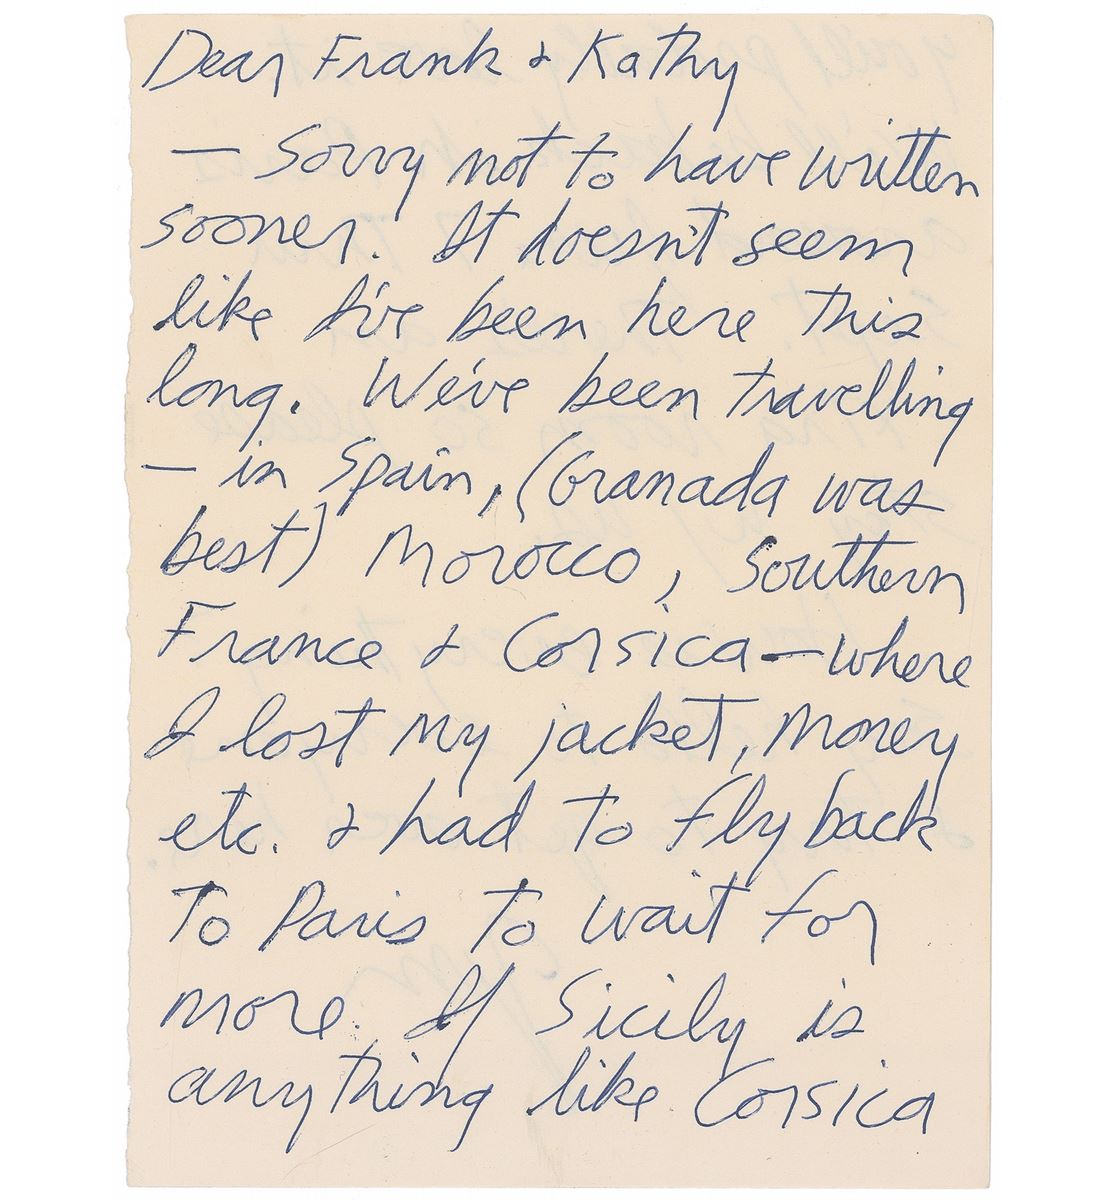 Dear Frank & Kathy
— Sorry not to have written
sooner. It doesn't seem
like I've been here this
long. We've been travelling
— in Spain, (Granada was
best) Morocco, Southern
France & Corsica — where
I lost my jacket, money
etc. & had to fly back
To Paris to wait for
more. If Sicily is
anything like Corsica